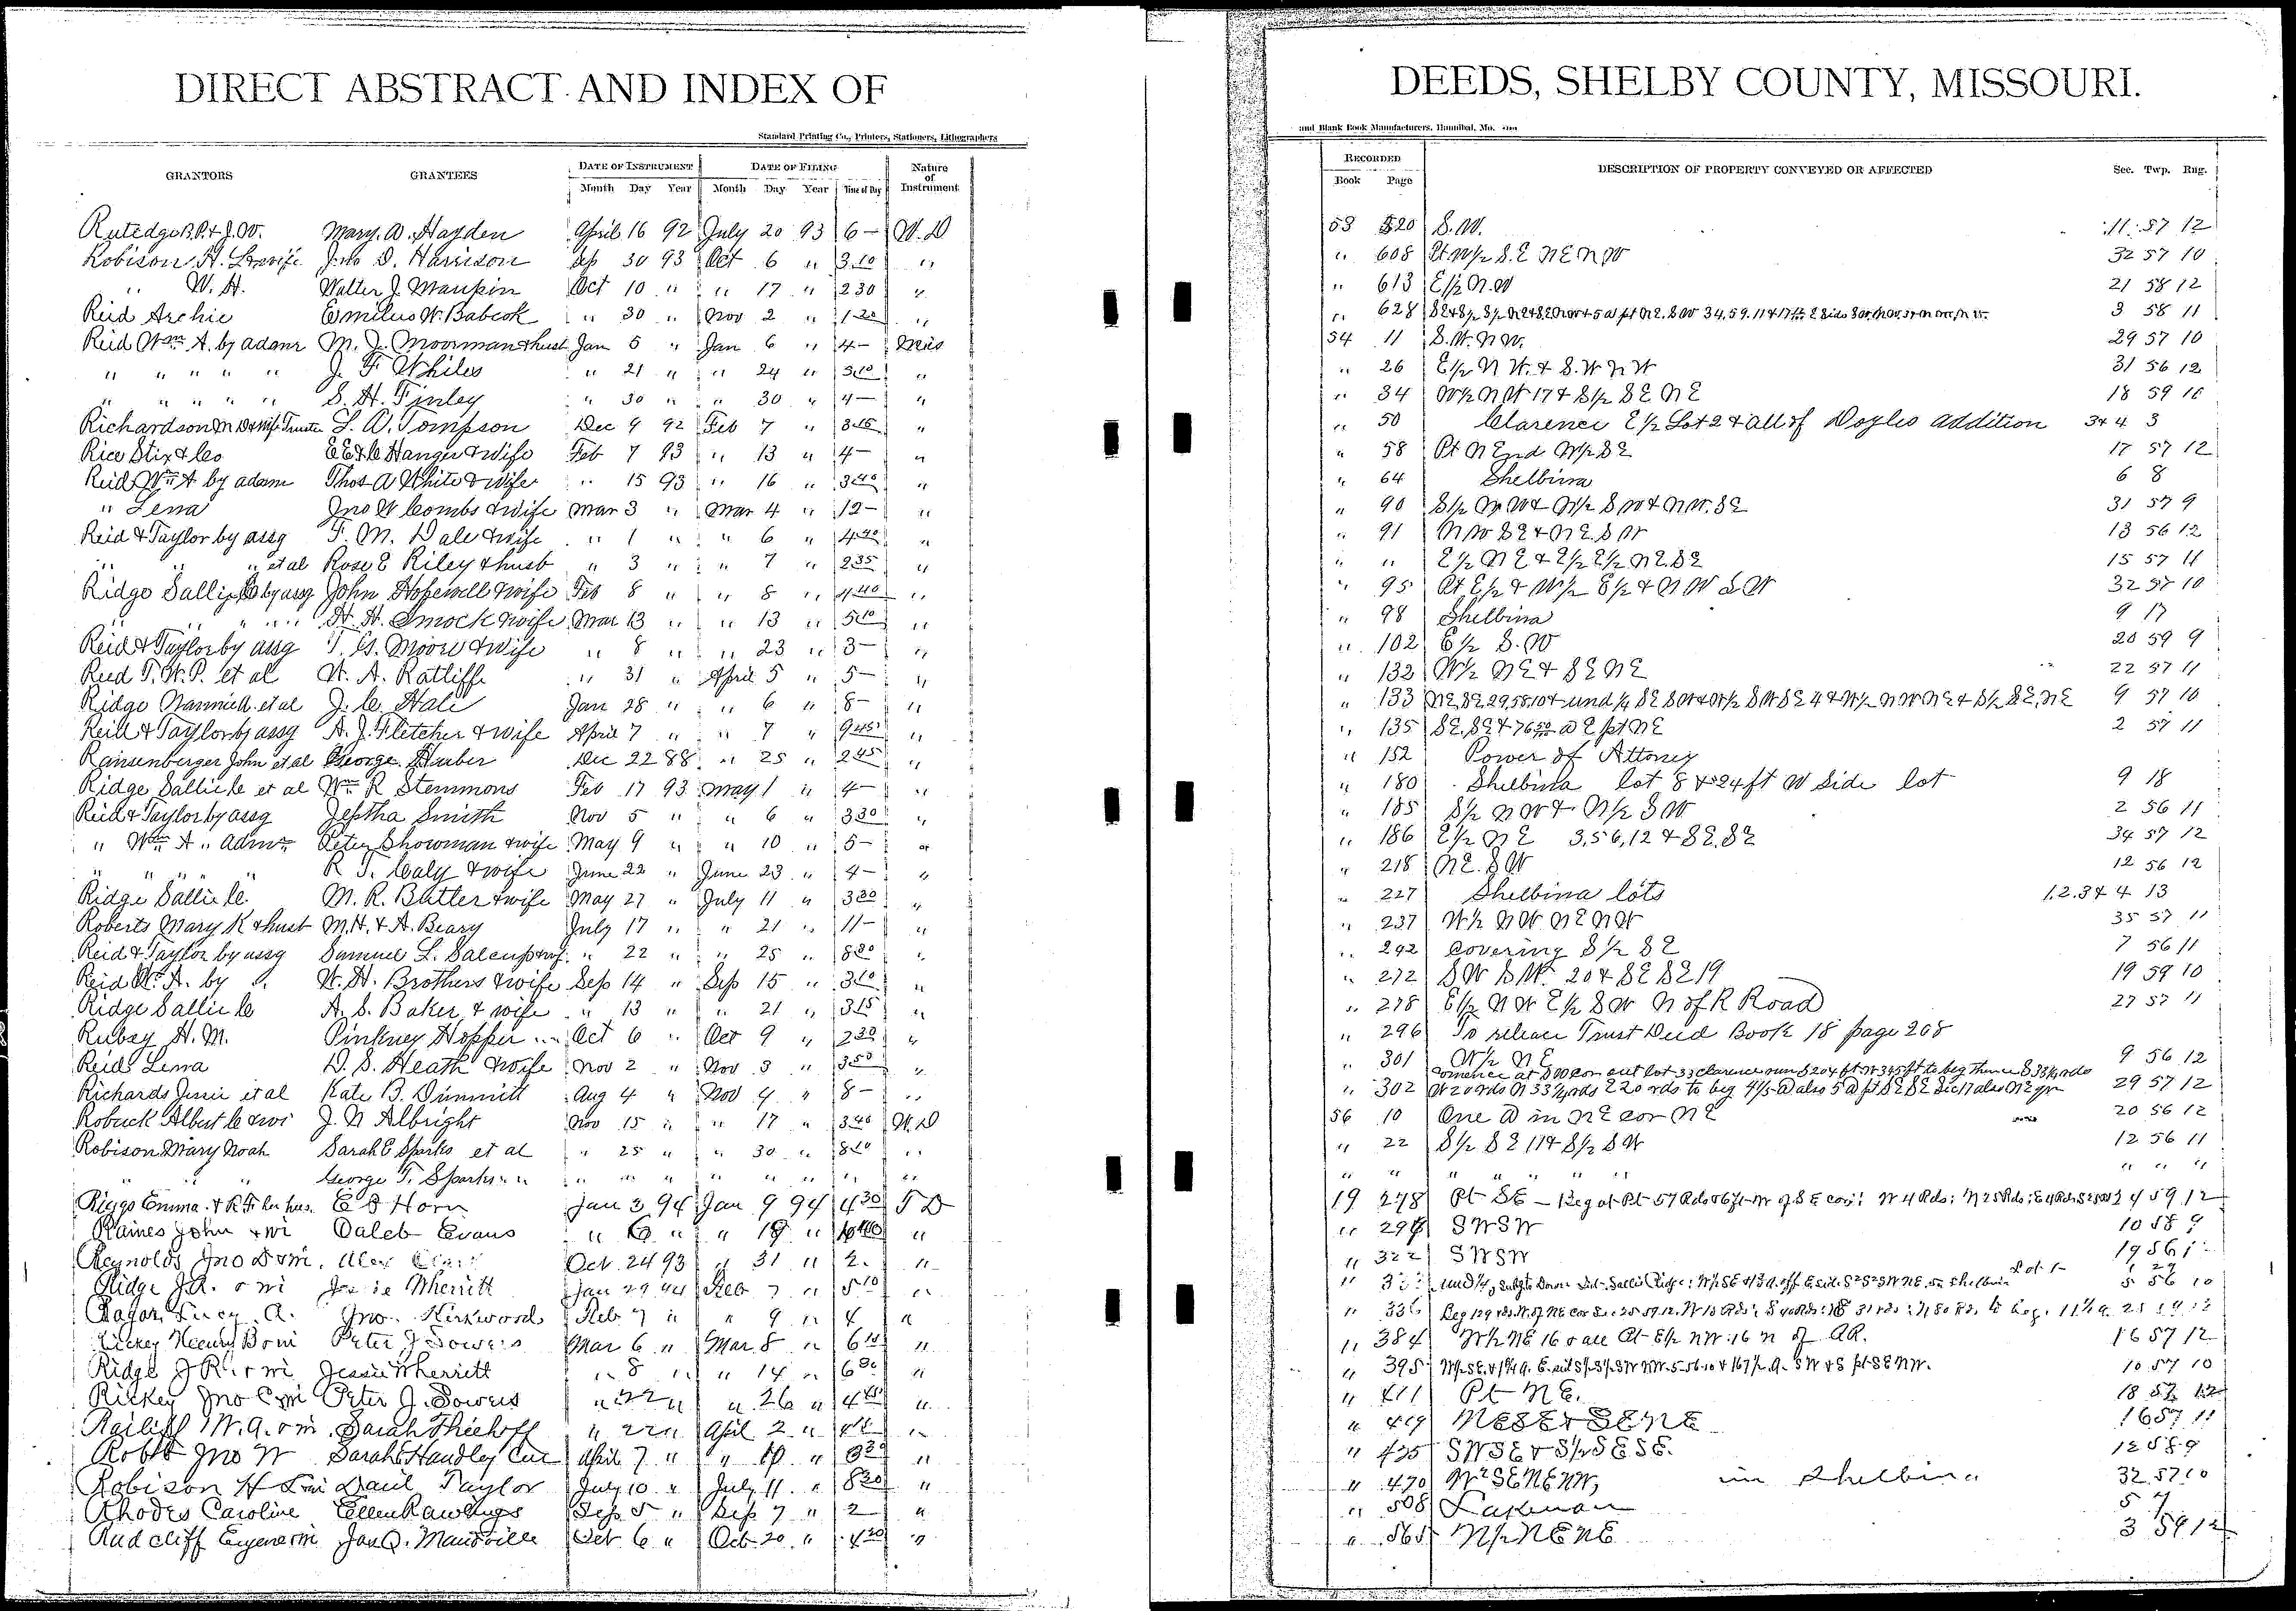 DIRECT ABSTRACT AND INDEX OF
Standard Printing Co., Printers, Stationers, Lithographers
GRANTORS GRANTEES DATE OF INSTRUMENT DATE OF FILING Nature of Instrument
Month Day Year Month Day Year Time of Day
Rutedge B.P. & J.W. Mary. A. Hayden April 16 92 July 20 93 6— W. D
Robison H. L & wife Jno D. Harrison Sep 30 93 Oct 6 " 3.10 "
" W. H. Walter J. Maupin Oct 10 " " 17 " 2 30 "
Reid Archie Emilus W. Babcok " 30 " Nov 2 " 1 20 "
Reid Wm A. by admr M. J. Moorman & hust Jan 5 " Jan 6 " 4— Mis
" " " " " J. F. Whiles " 21 " " 24 " 3.10 "
" " " " " S. H. Finley " 30 " " 30 " 4— "
Richardson M D & wife Trustee L. A. Tompson Dec 9 92 Feb 7 " 3.15 "
Rice Stix & Co E E & C Hanger & wife Feb 7 93 " 13 " 4— "
Reid Wm A by adam Thos A White & wife " 15 93 " 16 " 3 40 "
" Lena Jno W Combs & wife Mar 3 " Mar 4 " 12— "
Reid & Taylor by assg F. M. Dale & wife " 1 " " 6 " 4 40 "
" " " et al Rose E Riley & husb " 3 " " 7 " 2 35 "
Ridge Sallie C by assg John Hopewell & wife Feb 8 " " 8 " 4 40 "
" " " " H. H. Smock & wife Mar 13 " " 13 " 5 10 "
Reid & Taylor by assg T. G. Moore & wife " 8 " " 23 " 3— "
Reed T. W. P. et al W. A. Ratliff " 31 " April 5 " 5— "
Ridge Nannie A. et al J. C. Hale Jan 28 " " 6 " 8— "
Reid & Taylor by assg A. J. Fletcher & wife April 7 " " 7 " 9 45 "
Ransenberger John et al George Hauber Dec 22 88 " 25 " 2 45 "
Ridge Sallie C et al Wm R Stemmons Feb 17 93 May 1 " 4— "
Reid & Taylor by assg Jeptha Smith Nov 5 " " 6 " 3 30 "
" Wm A " Admr Peter Showman & wife May 9 " " 10 " 5— "
" " " " R T. Caly & wife June 22 " June 23 " 4— "
Ridge Sallie C. M. R. Butler & wife May 27 " July 11 " 3 30 "
Roberts Mary K & hust M. H. & A. Beary July 17 " " 21 " 11— "
Reid & Taylor by assg Samuel L. " 22 " " 25 " 8 20 "
Reid W. A. by " W. H. Brothers & wife Sep 14 " Sep 15 " 3 10 "
Ridge Sallie C A. S. Baker & wife " 13 " " 21 " 3 15 "
Rubey H. M. Pinkney Hopper Oct 6 " Oct 9 " 2 30 "
Reid Lena D. S. Heath & wife Nov 2 " Nov 3 " 3 50 "
Richards Jessie et al Kate B. Dimmitt Aug 4 " Nov 4 " 8— "
Robuck Albert C & wi J. N Albright Nov 15 " " 17 " 3 40 W. D
Robison Mary Noah Sarah E Sparks et al " 25 " " 30 " 8 10 "
" " George T. Sparks " " " " " " " " " "
Riggs Emma & R.F. her hus. E B Horn Jan 3 94 Jan 9 94 4 30 T D
Raines John & wi Caleb Evans " 6 " " 19 " 10 40 "
Reynolds Jno D & wi. Alex Oct 24 93 " 31 " 2. "
Ridge J.R. & wi Jessie Wherritt Jan 29 94 Feb 7 " 5 10 "
Ragar Lucy A. Jno. Kirkwood Feb 7 " " 9 " 4 "
Rickey Henry B & wi Peter J Sowers Mar 6 " Mar 8 " 6 10 "
Ridge J R. & wi Jessie Wherritt " 8 " " 14 " 6 30 "
Rickey Jno C & wi Peter J. Sowers " 22 " " 26 " 4 45 "
Railiff W. A. & wi Sarah Thiehoff " 22 " April 2 " "
Robb Jno W Sarah E Handley Cur April 7 " " 10 " 8 30 "
Robison H L & wi Danl Taylor July 10 " July 11 " 8 20 "
Rhodes Caroline Ellen Rawlings Sep 5 " Sep 7 " 2 "
Rudcliff Eugene & wi Jas Q. Mansville Oct 6 " Oct 20 " 4 20 "
DEEDS, SHELBY COUNTY, MISSOURI.
and Blank Book Manufacturers, Hannibal, Mo.
RECORDED DESCRIPTION OF PROPERTY CONVEYED OR AFFECTED Sec. Twp. Rng.
Book Page
53 520 S. W. 11 57 12
" 608 Pt W½ S.E NE NW 32 57 10
" 613 E½ N.W 21 58 12
" 628 3 58 11
54 11 S.W. NW. 29 57 10
" 26 E½ N W. & S.W N W 31 56 12
" 34 W½ N W 17 & S½ SE NE 18 59 10
" 50 Clarence E½ Lot 2 & all of Doyles addition 3 & 4 3
" 58 Pt N End W½ SE 17 57 12
" 64 Shelbina 6 8
" 90 S½ NW & N½ SW & NW. SE 31 57 9
" 91 NW SE & NE. SW 13 56 12
" " E½ NE & E½ E½ NE. SE 15 57 11
" 95 Pt E½ & W½ E½ & NW SW 32 57 10
" 98 Shelbina 9 17
" 102 E½ S.W 20 59 9
" 132 W½ NE & SE NE 22 57 11
" 133 NE, SE 29,58,10 & und ¼ SE SW & W½ SW SE 4 & W½ NW NE & S½ SE, NE 9 57 10
" 135 SE. SE & 76 50 a E pt NE 2 57 11
" 152 Power of Attorney
" 180 Shelbina lot 8 & 24 ft W Side lot 9 18
" 185 S½ NW & N½ SW 2 56 11
" 186 E½ NE 3,56,12 & SE, SE 34 57 12
" 218 NE. SW 12 56 12
" 227 Shelbina lots 1.2.3 & 4 13
" 237 W½ NW NE NW 35 57 11
" 242 Covering S½ SE 7 56 11
" 272 SW SW. 20 & SE SE 19 19 59 10
" 278 E½ NW E½ SW N of R Road 27 57 11
" 296 To release Trust Deed Book 18 page 208
" 301 W½ NE 9 56 12
" 302 29 57 12
56 10 One a in NE cor NE 20 56 12
" 22 S½ SE 11 & S½ SW 12 56 11
" " " " " " " " " "
19 278 Pt SE — 59 12
" 294 SWSW 10 58 9
" 322 SWSW 19 56
" Lot 1 5 56 10
" 336
" 384 W½ NE 16 & all Pt E½ NW 16 N of RR. 16 57 12
" 395 10 57 10
" 411 Pt NE. 18 57 12
" 419 NESE & SENE 16 57 11
" 425 SWSE & S½SESE. 12 58 9
" 470 W½ SENENW, in Shelbina 32 57 10
" 508 Lakenan 5 7
" 565 N½NENE 3 59 12